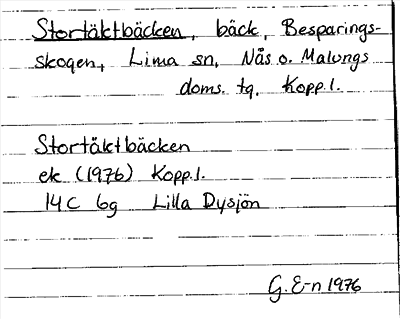 Stortäktbäcken, bäck, Besparings-
skogen, Lima sn, Nås o. Malungs
doms. tg, Kopp.l.
Stortäktbäcken
ek (1976) Kopp.l.
14C 6g Lilla Dysjön
G. E-n 1976